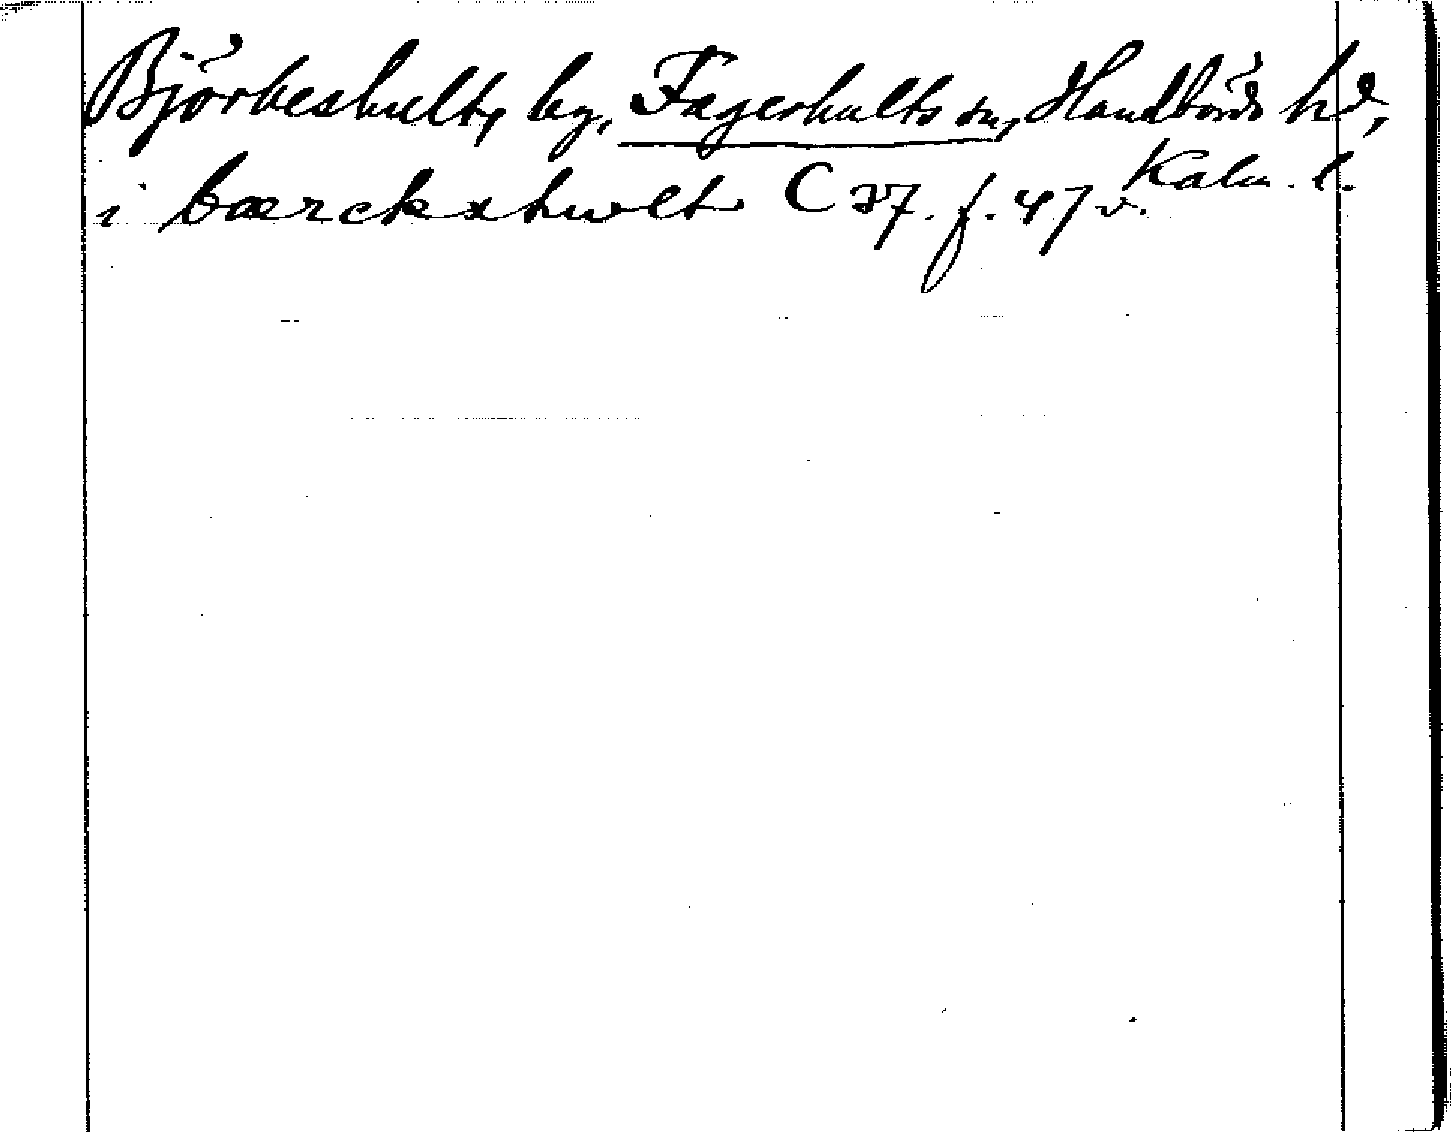 Björkeshult, by, Fagerhults sn, Handbörds hd,
Kalm. l.
i bærckxhwlt C 37. f. 47 v.